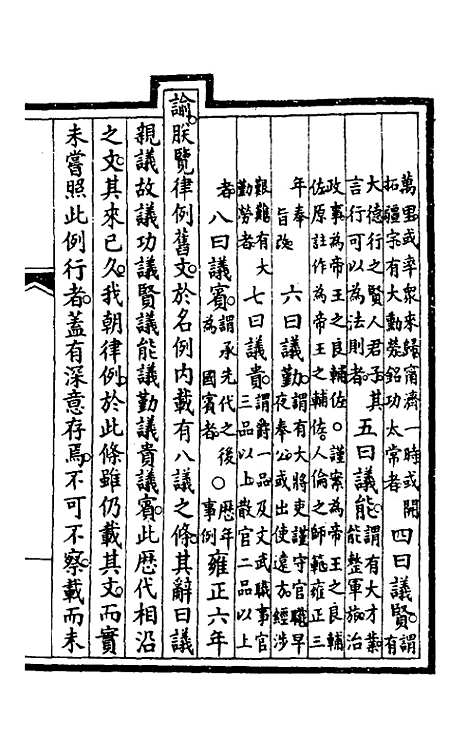 萬里或率衆來歸甯濟一時或開
拓疆宇有大勳勞銘功太常者
四曰議賢
謂
有
大德行之賢人君子其
言行可以為法則者
五曰議能
謂有大才業
能整軍旅治
政事為帝王之良輔佐○謹案為帝王之良輔
佐原註作為帝王之輔佐人倫之師範雍正三
年奉
旨改
六曰議勤
謂有大將吏謹守官職早
夜奉公或出使遠方經涉
艱難有大
勤勞者
七曰議貴
謂爵一品及文武職事官
三品以上散官二品以上
者
八曰議賓
謂承先代之後
為國賓者
○
歴年
事例
雍正六年
諭朕覽律例舊文於名例內載有八議之條其辭曰議
親議故議功議賢議能議勤議貴議賓此歴代相沿
之文其來已久我朝律例於此條雖仍載其文而實
未嘗照此例行者蓋有深意存焉不可不察載而未